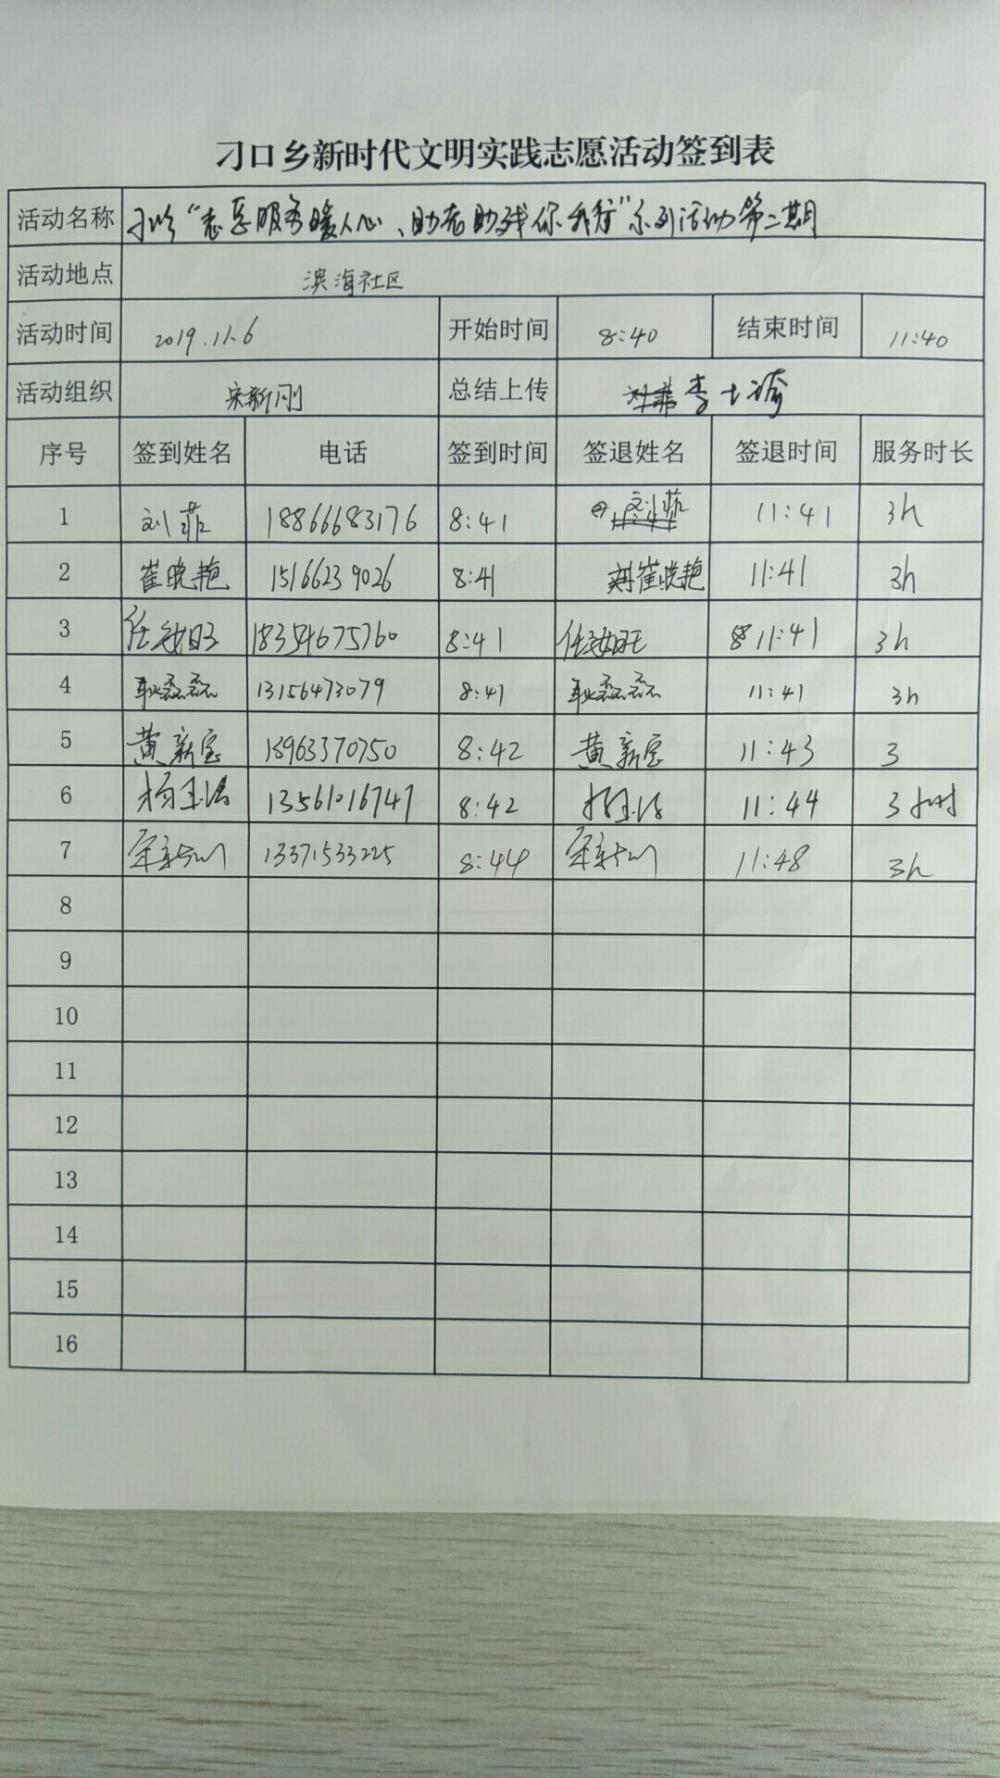 刁口乡新时代文明实践志愿活动签到表
活动名称 "志愿服务暖人心、助老助残你我行"系列活动第二期
活动地点 滨海社区
活动时间 2019.11.6 开始时间 8:40 结束时间 11:40
活动组织 宋新刚 总结上传 李士
序号 签到姓名 电话 签到时间 签退姓名 签退时间 服务时长
1 刘菲 18866683176 8:41 刘菲 11:41 3h
2 崔晓艳 15166239026 8:41 崔晓艳 11:41 3h
3 任 18354675760 8:41 任 11:41 3h
4 耿磊磊 13156473079 8:41 耿磊磊 11:41 3h
5 黄新宝 18963370750 8:42 黄新宝 11:43 3
6 杨玉洁 13561016747 8:42 杨玉洁 11:44 3小时
7 宋新刚 13371533225 8:44 宋新刚 11:48 3h
8
9
10
11
12
13
14
15
16